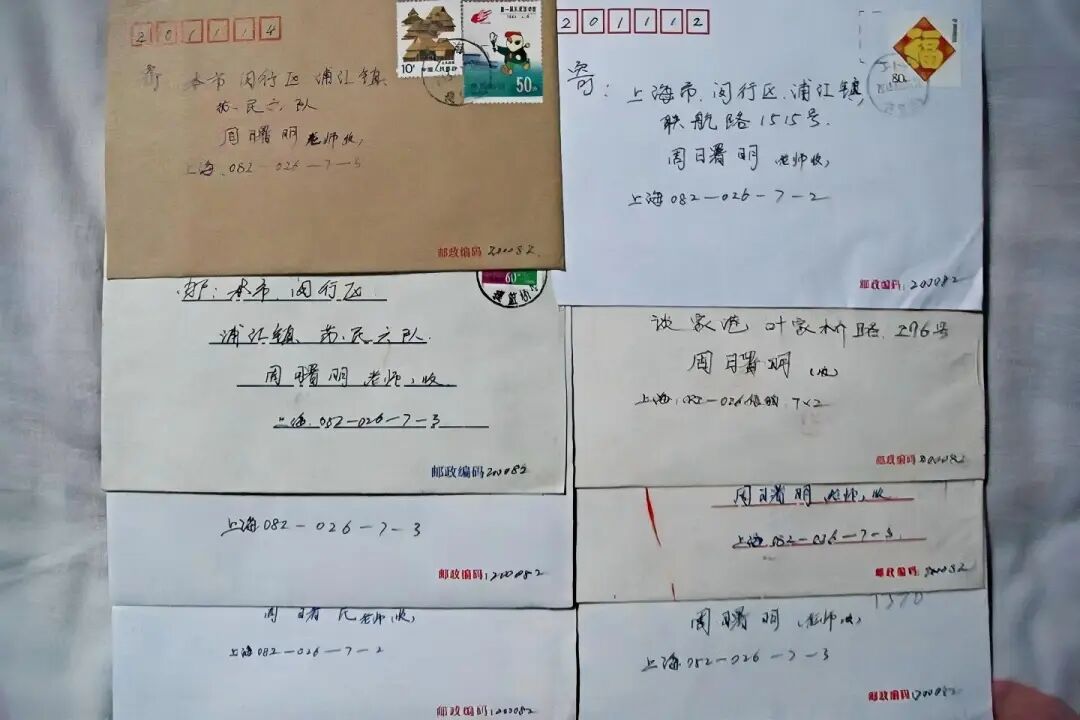 201114
寄 本市 闵行区 浦江镇
民六队
周曙明 老师收
上海 082-026-7-3
邮政编码 200082
10分
50分
201112
寄：上海市、闵行区、浦江镇，
联航路1515号.
周曙明 老师收，
上海082-026-7-2
邮政编码：200082
80分
福
邮：本市、闵行区
浦江镇、 民六队
周曙明 老师，收
上海.082-026-7-3
邮政编码 200082
60
谈家港 叶家桥路.276号
周曙明 (收)
上海：082-026信明 7×2
邮政编码 200082
上海082-026-7-3
邮政编码：200082
周曙明 老师，收
上海.082-026-7-3.
邮政编码 200082
周曙民 老师收，
上海082-026-7-2
邮政编码 200082
1370
周曙明 (老师收)
上海082-026-7-3
邮政编码 200082